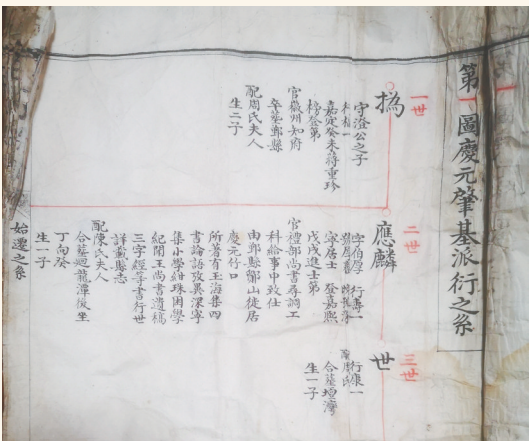 第一圖慶元肇基派衍之系
一世
撝
守澄公之子
嘉定癸未蔣重珍
榜登第
官徽州知府
卒葬鄞縣
配周氏夫人
生二子
二世
應麟
字伯厚 行壽一
號厚齋 晚號深
寧居士 登嘉熙
戊戌進士第
官禮部尚書尋調工
科給事中致仕
由鄞縣鄮山徙居
慶元竹口
所著有玉海集四
書論語攷異深寧
集小學紺珠困學
紀聞王尚書遺稿
三字經等書行世
詳載縣志
配陳氏夫人
合葬廻龍潭後坐
丁向癸
生一子
三世
世
行康一
周氏
合葬垣灣
生一子
始遷之系